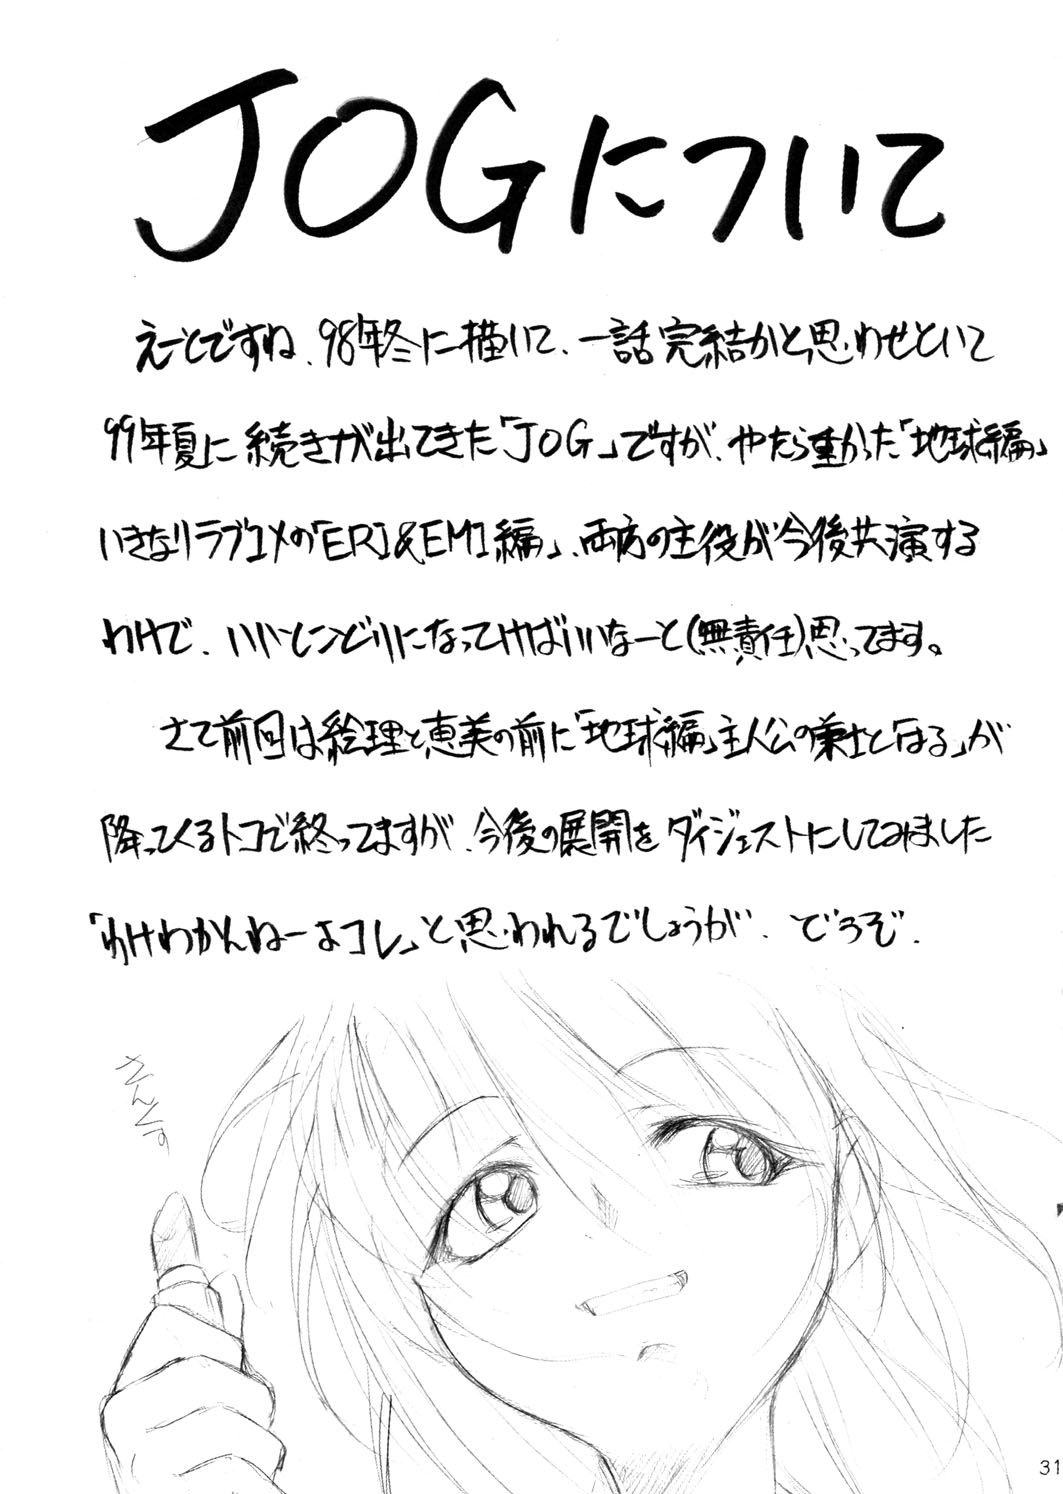 JOGについて
えーとですね、98年冬に描いて、一話完結かと思わせといて
99年夏に続きが出てきた「JOG」ですが、やたら重かった「地球編」
いきなりラブコメの「ERI&EMI編」、両方の主役が今後共演する
わけで、いいとこどりになってけばいいなーと(無責任)思ってます。
さて前回は絵理と恵美の前に「地球編」主人公の兼士と「はる」が
降ってくるトコで終ってますが、今後の展開をダイジェストにしてみました
「わけわかんねーよコレ」と思われるでしょうが、どうぞ。
さんぷ
31